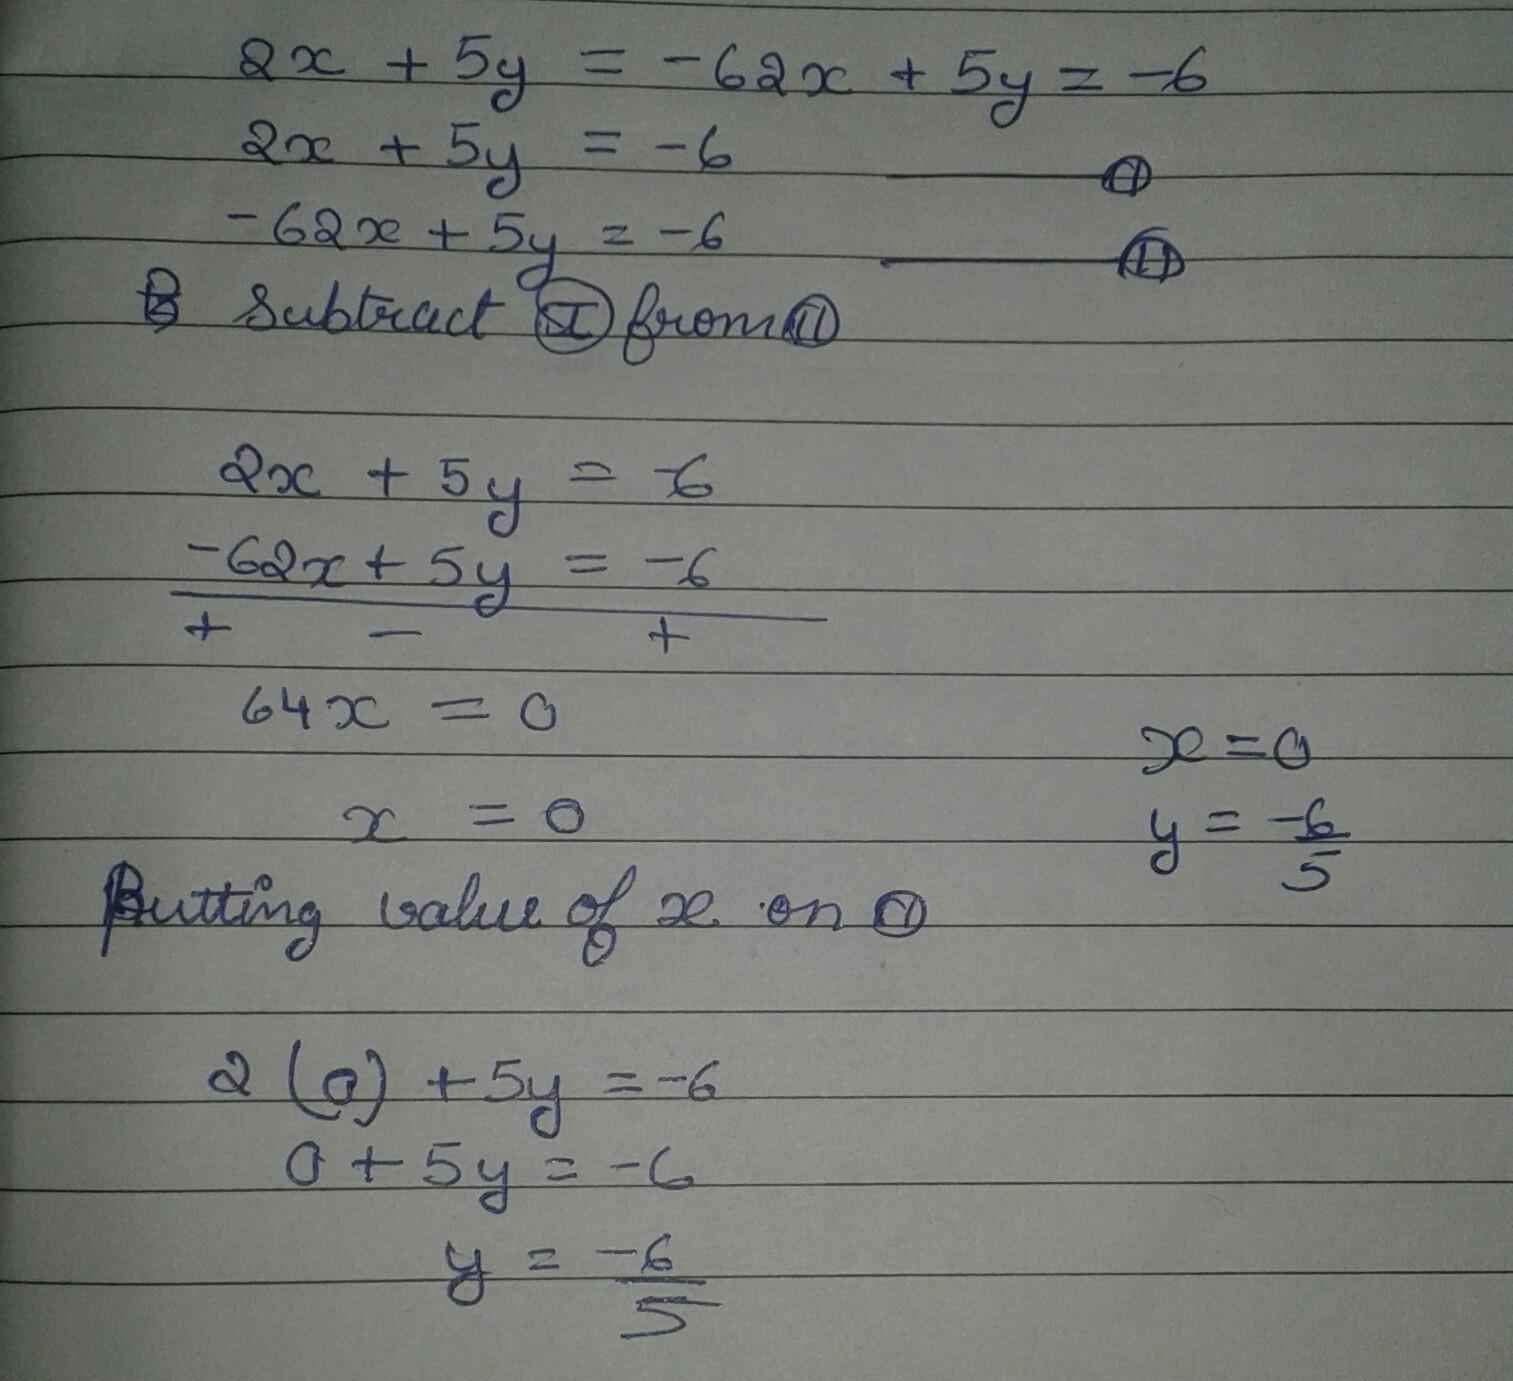 2x + 5y = -62x + 5y = -6
2x + 5y = -6 ——— (I)
-62x + 5y = -6 ——— (II)
Subtract (I) from (II)
2x + 5y = -6
-62x + 5y = -6
+ - +
64x = 0
x = 0
x = 0
y = -6/5
Putting value of x on (I)
2 (0) + 5y = -6
0 + 5y = -6
y = -6/5